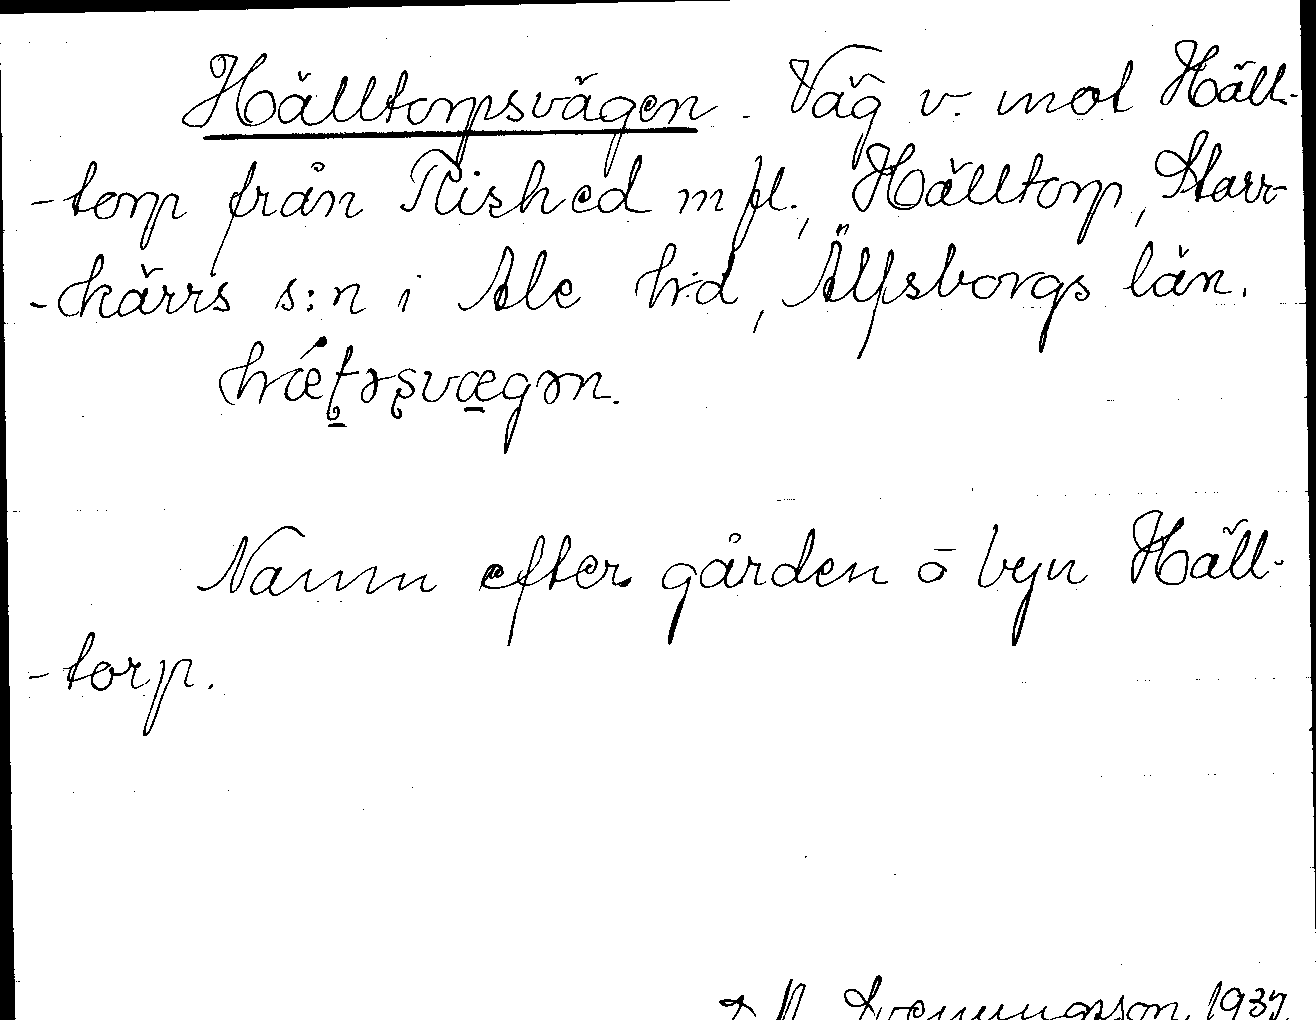 Hälltorpsvägen. Väg v. mot Häll-
-torp från Rished m fl., Hälltorp, Starr-
-kärrs s:n i Ale h:d, Älfsborgs län.
Namn efter gården o byn Häll-
-torp.
Svenningsson 1937